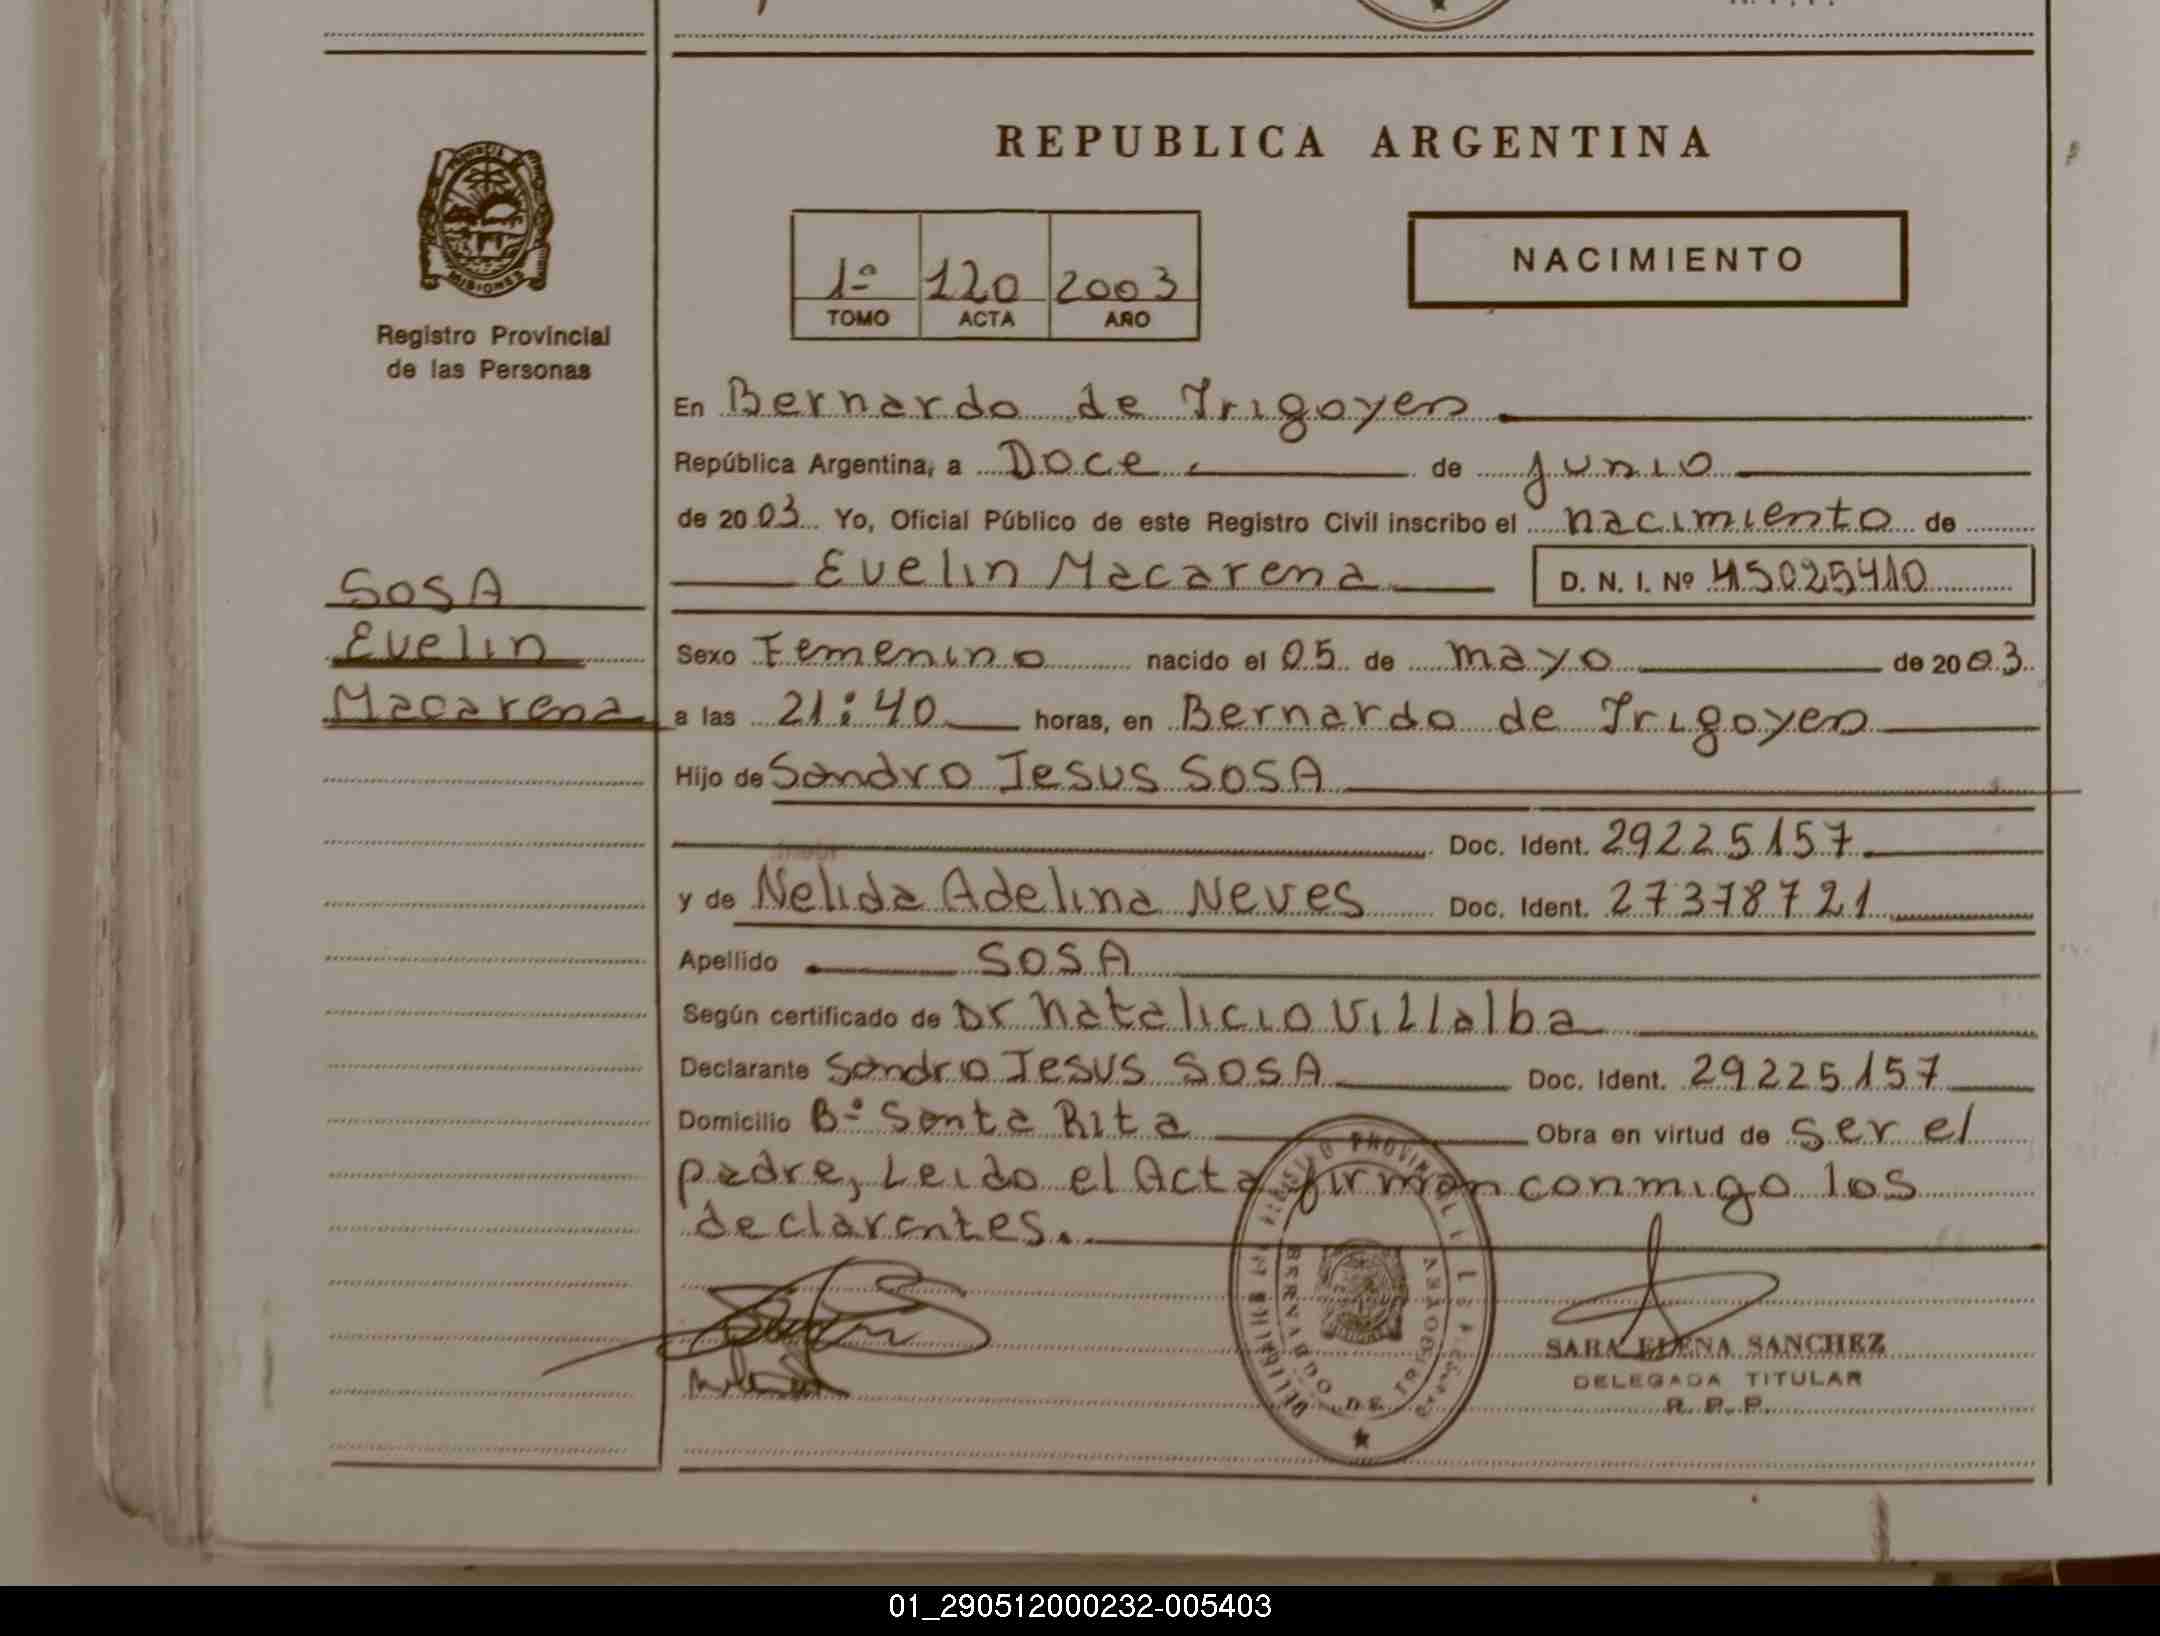 REPUBLICA ARGENTINA
MISIONES
Registro Provincial
de las Personas
1º 120 2003
TOMO ACTA AÑO
NACIMIENTO
En Bernardo de Irigoyen
República Argentina, a Doce de junio
de 2003 Yo, Oficial Público de este Registro Civil inscribo el nacimiento de
Evelin Macarena D. N. I. Nº 45025410
SOSA
Evelin
Macarena
Sexo Femenino nacido el 05 de mayo de 2003
a las 21:40 horas, en Bernardo de Irigoyen
Hijo de Sandro Jesus SOSA
Doc. Ident. 29225157
y de Nelida Adelina Neves Doc. Ident. 27378721
Apellido SOSA
Según certificado de Dr Natalicio Villalba
Declarante Sandro Jesus SOSA Doc. Ident. 29225157
Domicilio Bº Santa Rita Obra en virtud de ser el
padre, Leido el Acta firman conmigo los
declarantes.
BERNARDO DE IRIGOYEN
SARA ELENA SANCHEZ
DELEGADA TITULAR
R. P. P.
01_290512000232-005403